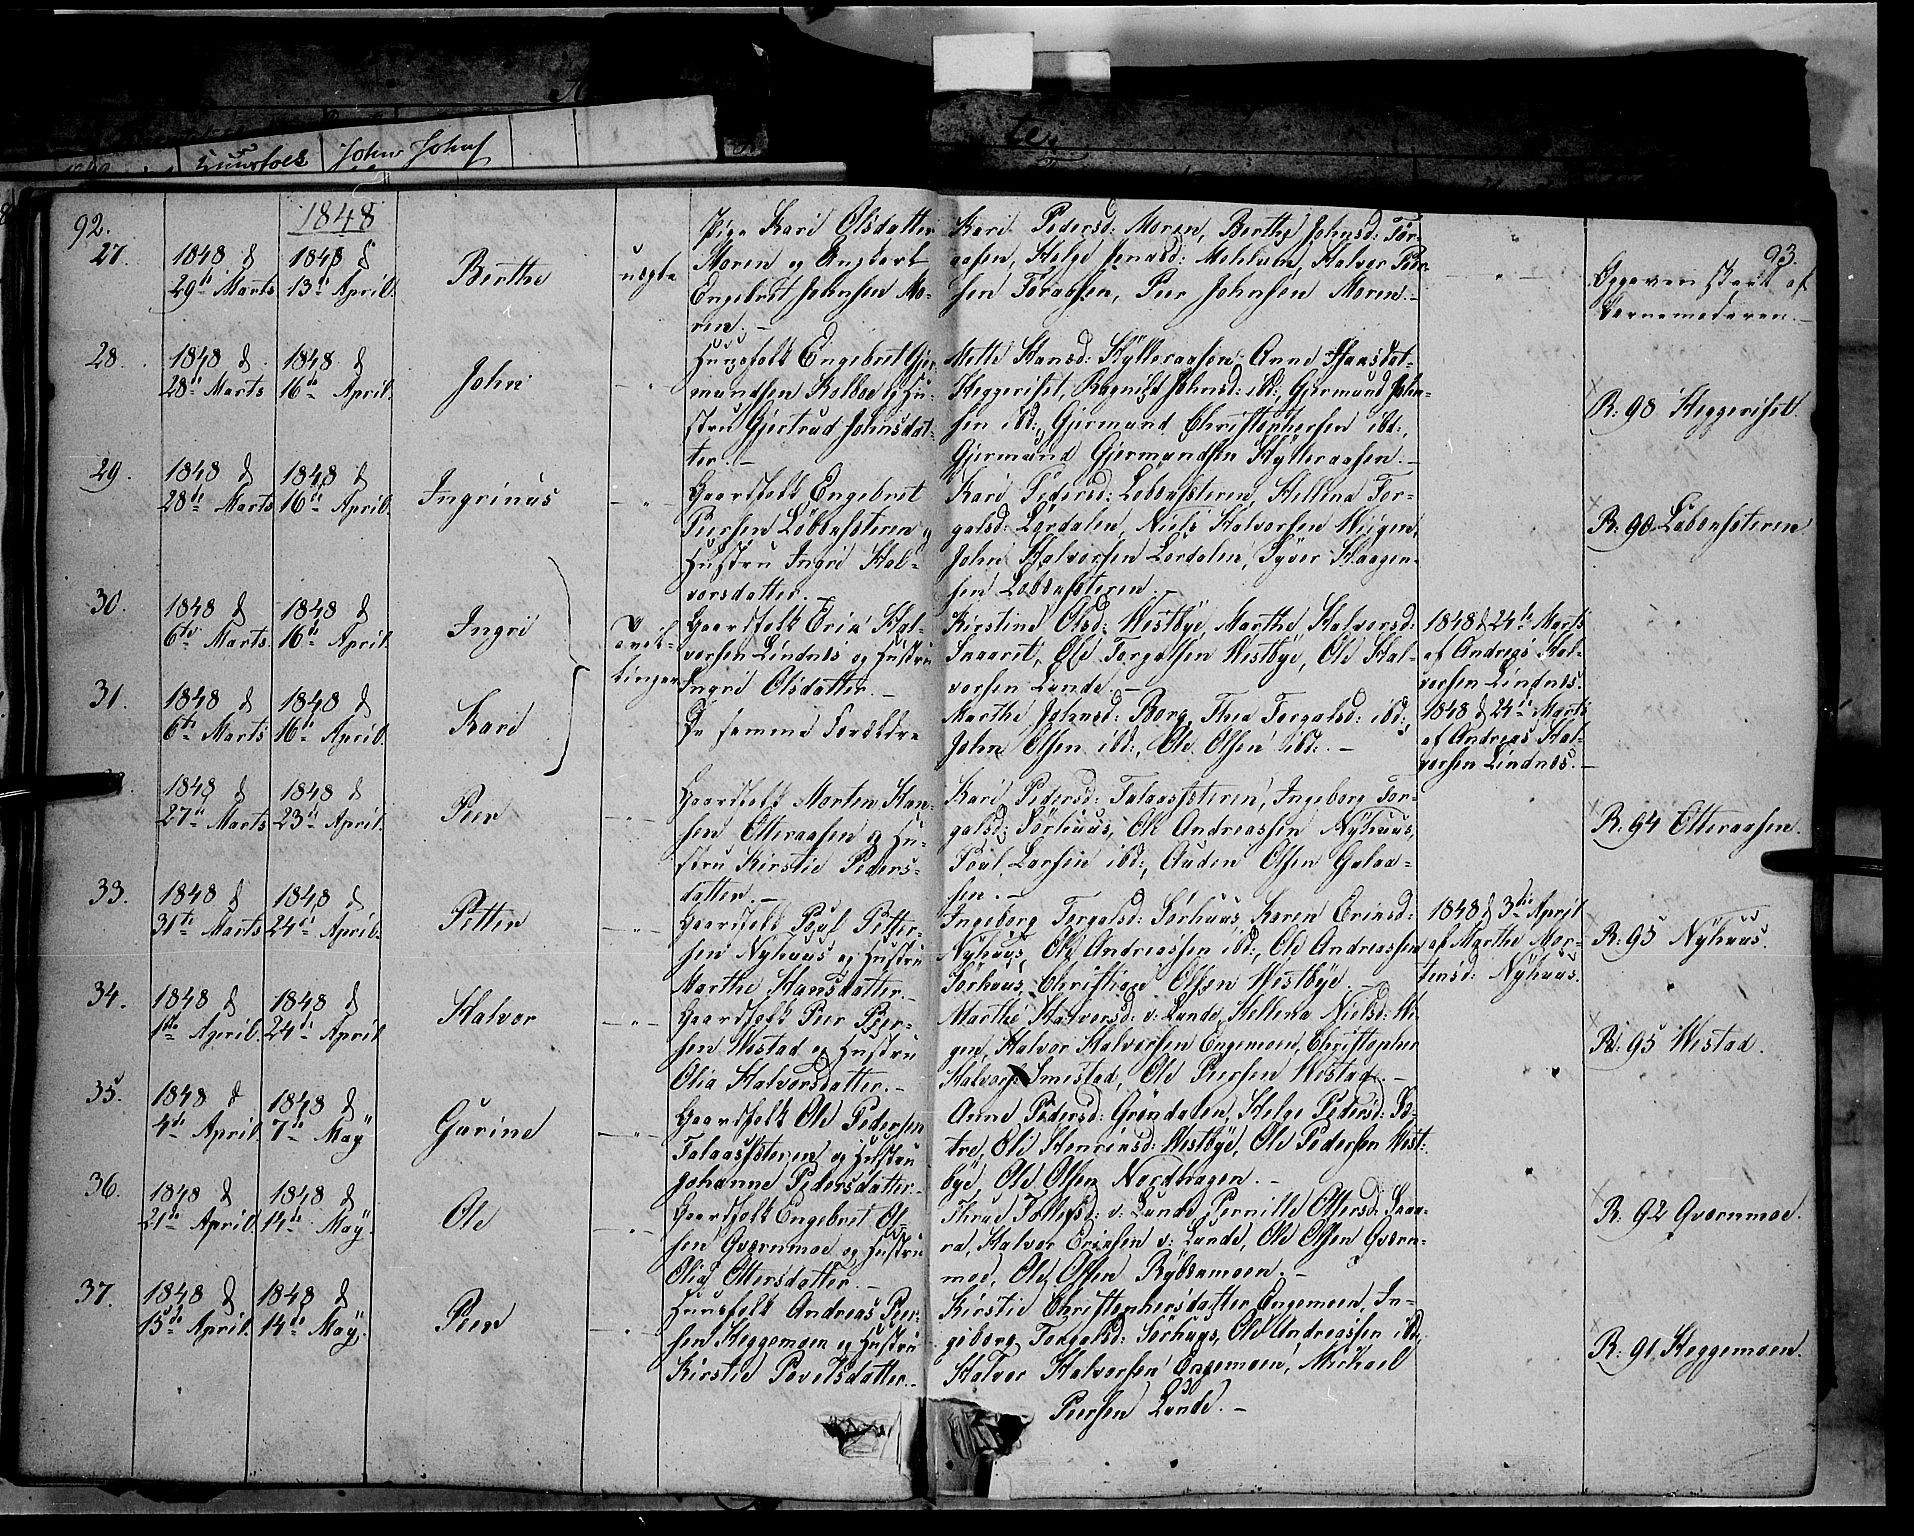 Huusfolk John Johns
92.
1848
93.
27.
1848 d
29de Marts
1848 d
13de April.
Berthe
uegte
Pige Kari Olsdatter
Moren og Ungkarl
Engebret Johnsen Mo-
ren. -
Kari Pedersd: Moren, Berthe Johnsd: Tor-
aasen, Helge Jensd: Mehlum, Halvor Peder-
sen Toraasen, Peer Johnsen Moren. -
- " -
Opgaven skedt af
Barnemoderen. -
28.
1848 d
28de Marts
1848 d
16de April.
John
- " -
Huusfolk Engebret Gjer-
mundsen Kolboe og Hu-
stru Gjertrud Johnsdat-
ter. -
Mette Hansd: Stykkeraasen, Anne Hansdat-
Heggeriset, Ragnild Johnsd: ibd:, Gjermund John-
sen ibd:, Gjermund Christophersen ibd:,
Gjermund Gjermundsen Stykkeraasen. -
R: 98 Heggeriset.
29.
1848 d
28de Marts
1848 d
16de April.
Ingrinus
- " -
Gaardfolk Engebret
Peersen Löbbensteren og
Hustru Ingri Hal-
vorsdatter. -
Kari Pedersd: Löbbensteren, Hellena Tor-
galsd: Lördalen, Niels Halvorsen Wiigen,
John Halvorsen Lördalen, Syver Haagen-
sen Löbbensteren. -
R: 90 Löbbensteren
30.
1848 d
6te Marts.
1848 d
16de April
Ingri
Tvil-
linger
Gaardfolk Erik Hal-
vorsen Lindnes og Hustru
Ingri Olsdatter. -
Kirstine Olsd: Westbye, Marthe Halvorsd:
Snaaret, Ole Torgalsen Westbye, Ole Hal-
vorsen Lunde. -
1848 d 24de Marts
af Andreas Hal-
vorsen Lindnes.
31.
1848 d
6te Marts
1848 d
16de April.
Kari
De samme Forældre
Marthe Johnsd: Borg, Thea Torgalsd: ibd:,
John Olsen ibd:, Ole Olsen ibd: . -
1848 d 24de Marts
af Andreas Hal-
vorsen Lindnes. -
1848 d
27de Marts
1848 d
23de April.
Peer
- " -
Gaardfolk Morten Han-
sen Otteraasen og Hu-
stru Kirstie Peders-
datter. -
Kari Pedersd: Falaassteren, Ingeborg Tor-
galsd: Sörhuus, Ole Andreassen Nyhuus,
Poul Larsen ibd:, Auden Olsen Galaa-
sen. -
R: 94 Otteraasen.
33.
1848 d
31te Marts
1848 d
24de April.
Petter
- " -
Gaardfolk Poul Petter-
sen Nyhuus og Hustru
Marthe Hansdatter. -
Ingeborg Torgalsd: Sörhuus, Karen Eriksd:
Nyhuus, Ole Andreassen ibd:, Ole Andreassen
Sörhuus, Christian Olsen Westbye. -
1848 d 3die April
af Marthe Mor-
tensd: Nyhuus.
R: 95 Nyhuus.
34.
1848 d
1ste April.
1848 d
24de April
Halvor
- " -
Gaardfolk Peer Peer-
sen Westad og Hustru
Olia Halvorsdatter. -
Marthe Halvorsd: v: Lunde, Hellena Nielsd: Wi-
gen, Halvor Halvorsen Engemoen, Christopher
Halvors: Smestad, Ole Peersen Westad. -
R: 95 Westad.
35.
1848 d
4de April
1848 d
7de May
Gurine
- " -
Gaardfolk Ole Pedersen
Falaassteren og Hustru
Johanne Pedersdatter. -
Anne Pedersd: Gröndalen, Helge Pedersd:
tre, Oli Henriksd: Westbye, Ole Pedersen West-
bye, Ole Olsen Nordhagen. -
36.
1848 d
21de April
1848 d
14de May.
Ole
- " -
Gaardfolk Engebret Ol-
sen Qvernmoe og Hustru
Olia Ottersdatter. -
Thrud Tollefsd: v: Lunde, Pernille Ottersd: Snaa-
ra, Halvor Eriksen v: Lunde, Ole Olsen Qvern-
moe, Ole Olsen Rybænmoen. -
R: 92 Qvernmoe.
37.
1848 d
15de April.
1848 d
14de May,
Peer
- " -
Huusfolk Andreas Peer-
sen Heggemoen og Hustru
Kirstie Povelsdatter. -
Kirstie Christophersdatter Engemoen, In-
geborg Torgalsd: Sörhuus, Ole Andreassen ibd:,
Halvor Halvorsen Engemoen, Michael
Peersen Lunde. -
R: 91. Heggemoen.